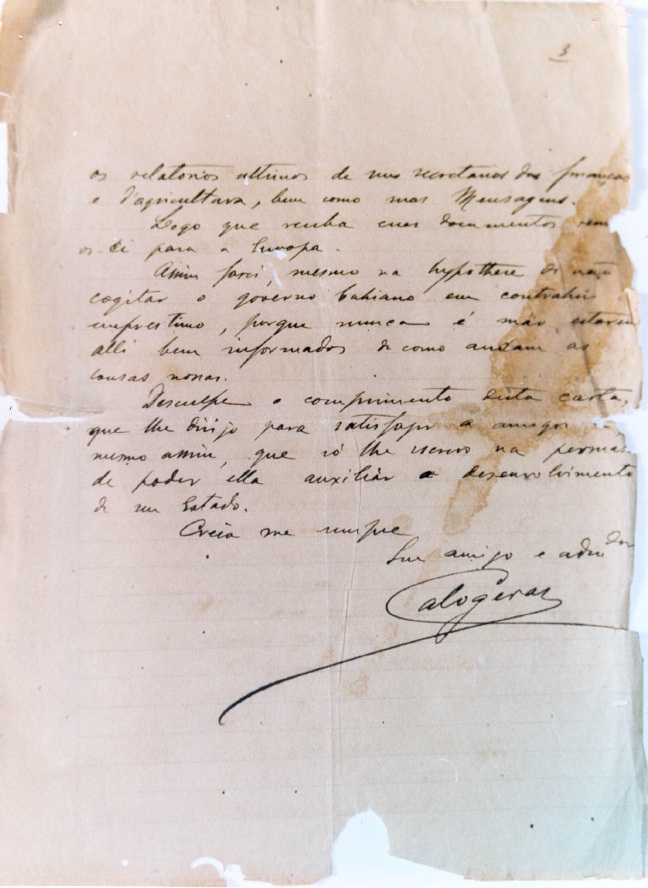 3
os relatorios ultimos de seus secretarios das finanças
e d'agricultura, bem como suas Mensagens.
Logo que receba esses documentos
os-ei para a Europa.
Assim farei, mesmo na hypothese de não
cogitar o governo bahiano em contrahir
emprestimo, porque nunca é máo estarem
alli bem informados de como andam as
cousas nossas.
Desculpe o comprimento desta carta,
que lhe dirijo para satisfazer a amigos
mesmo assim, que só lhe escrevo na
de poder ella auxiliar o desenvolvimento
de seu Estado.
Creia-me sempre
Seu amigo e admdor
Calogeras